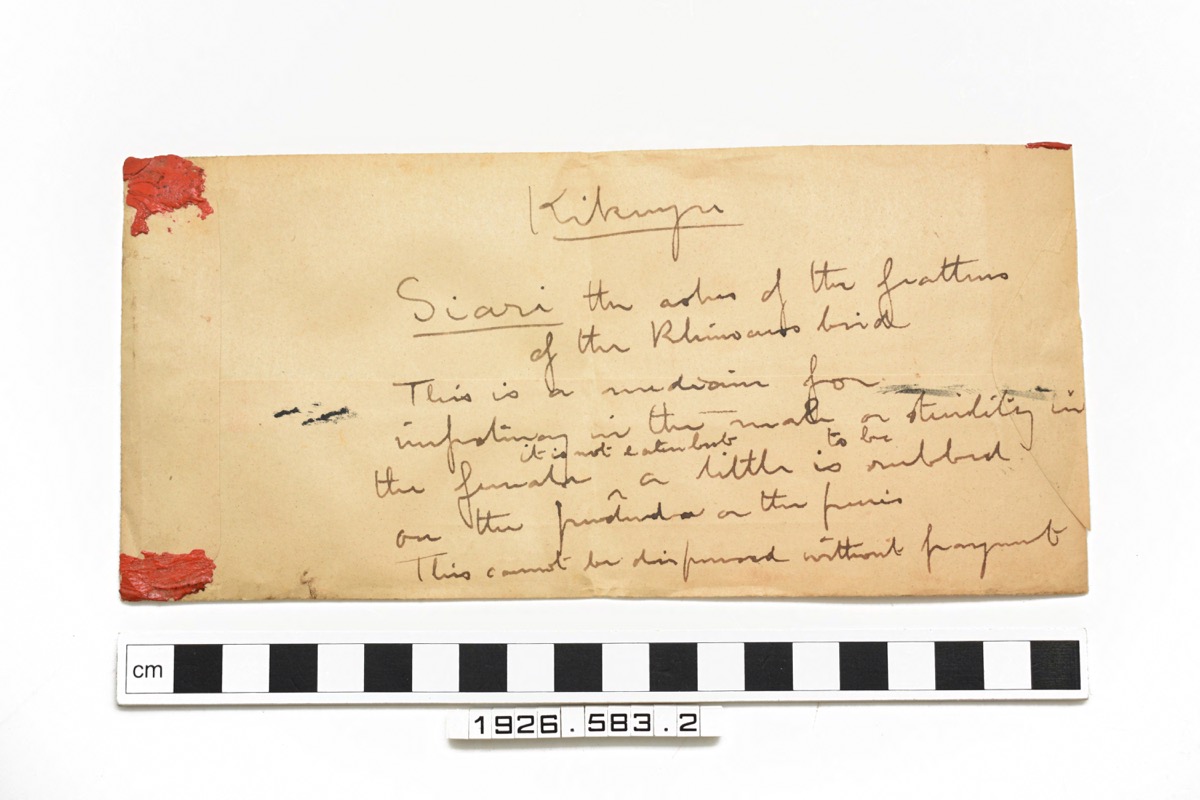 Kikuyu
Siari the ashes of the feathers
of the Rhinoceros bird
This is a medicine for
impotency in the male or sterility in
it is not eaten but to be
the female ^ a little is rubbed
on the pudenda or the penis
This cannot be dispensed without payment
cm
1926.583.2